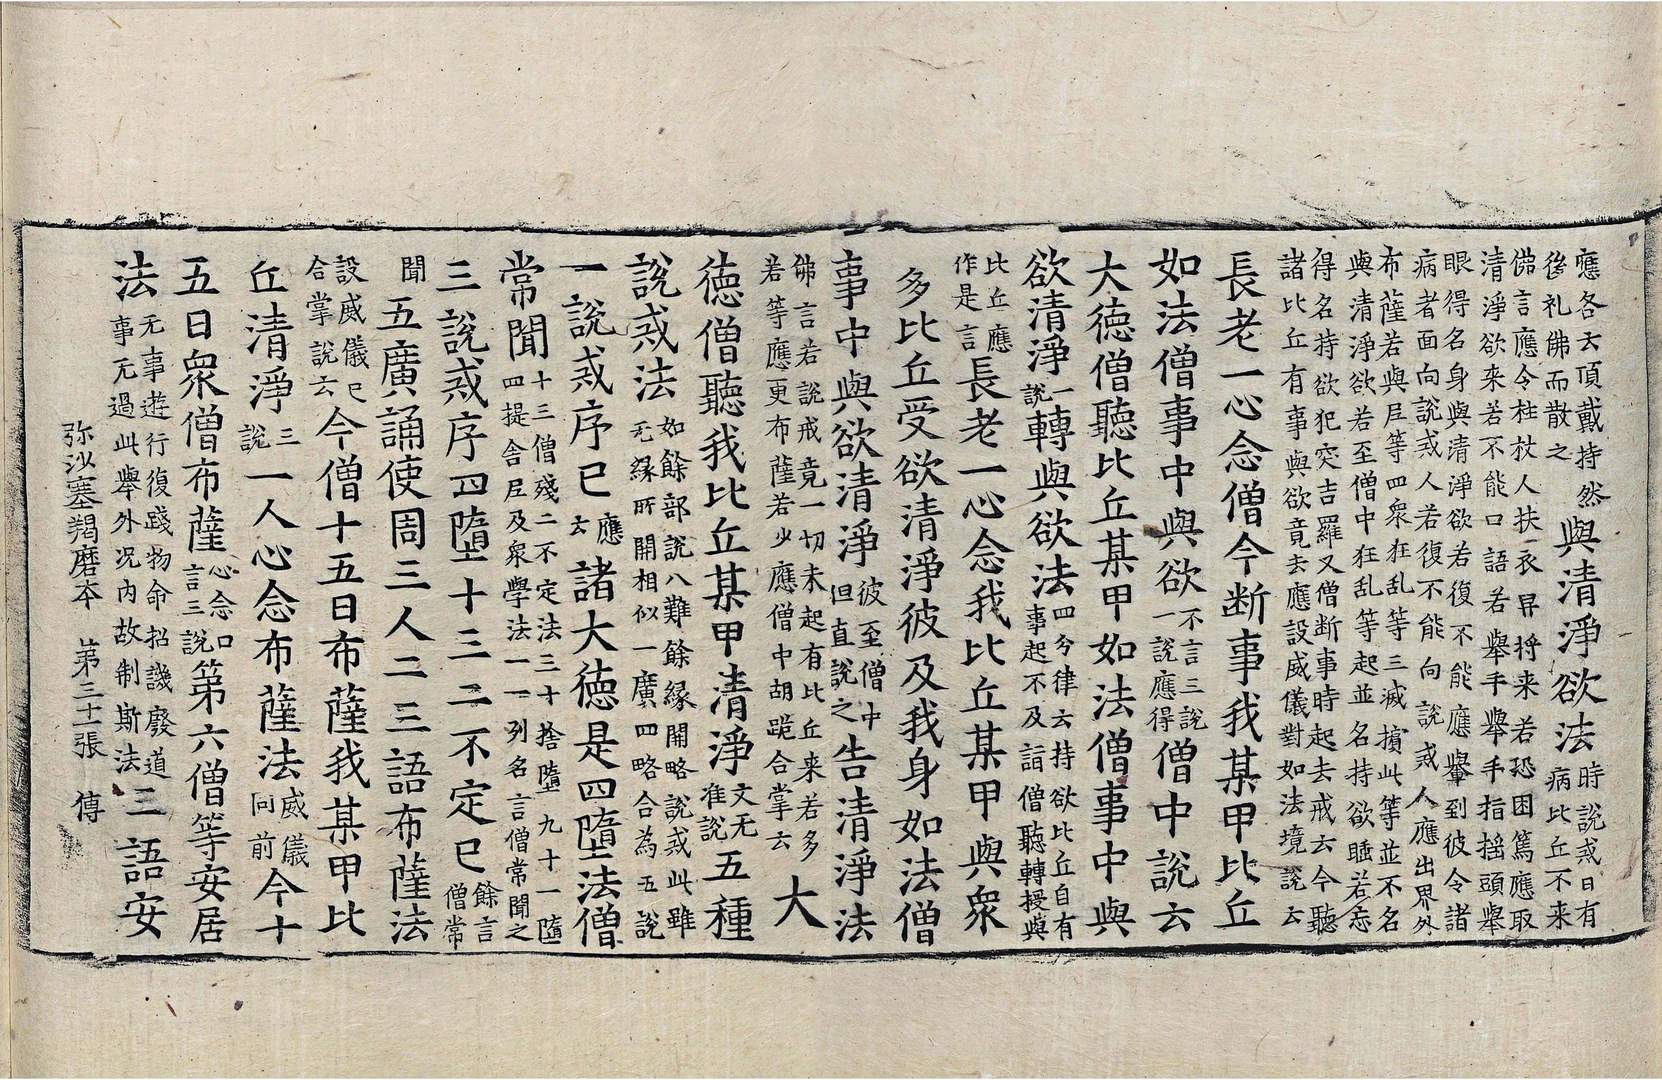 應各去頂戴持然後礼佛而散之與清淨欲法時說戒日有病比丘不来
佛言應令柱杖人扶衣舁捋来若恐困篤應取
清淨欲来若不能口語若舉手舉手指揺頭舉
眼得名身與清淨欲若復不能應轝到彼令諸
病者面向說戒人若復不能向說戒人應出界外
布薩若與尼等四衆狂乱等三滅擯此等並不名
與清淨欲若至僧中狂乱等起並名持欲睡若忘
得名持欲犯突吉羅又僧断事時起去戒云今聽
諸比丘有事與欲竟去應設威儀對如法境說云
長老一心念僧今断事我某甲比丘
如法僧事中與欲不言三說一說應得僧中說云
大德僧聽比丘某甲如法僧事中與
欲清淨一說轉與欲法四分律云持欲比丘自有事起不及詣僧聽轉授與
比丘應作是言長老一心念我比丘某甲與衆
多比丘受欲清淨彼及我身如法僧
事中與欲清淨彼至僧中但直說之告清淨法
佛言若說戒竟一切未起有比丘来若多若等應更布薩若少應僧中胡跪合掌云大
德僧聽我比丘某甲清淨文无准說五種
說戒法如餘部說八難餘縁開略說戒此雖无縁所開相似一廣四略合為五說
一說戒序已應云諸大德是四墮法僧
常聞十三僧殘二不定法三十捨墮九十一墮四提舍尼及衆學法一一列名言僧常聞之
三說戒序四墮十三二不定已餘言僧常
聞五廣誦使周三人二三語布薩法
設威儀已合掌說云今僧十五日布薩我某甲比
丘清淨三說一人心念布薩法威儀同前今十
五日衆僧布薩心念口言三說第六僧等安居
法无事遊行復踐物命招譏廢道事无過此舉外况内故制斯法三語安
弥沙塞羯磨本 第三十張 傅